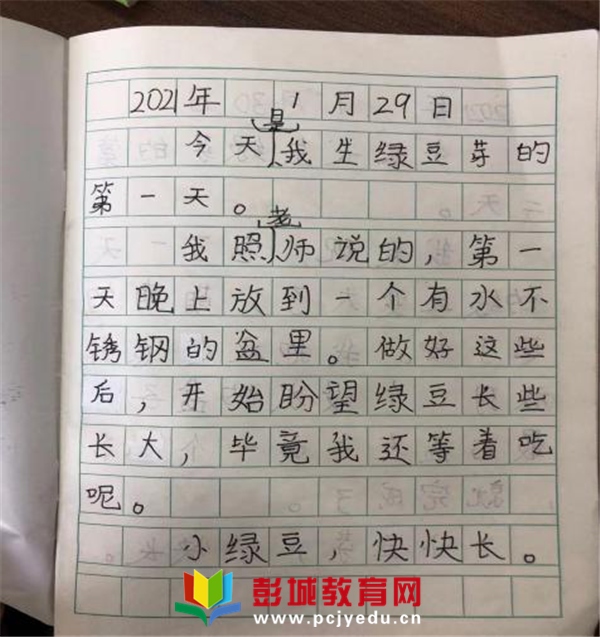 2021年1月29日
今天是我生绿豆芽的
第一天。
我照老师说的,第一
天晚上放到一个有水不
锈钢的盆里。做好这些
后,开始盼望绿豆长些
长大,毕竟我还等着吃
呢。
小绿豆,快快长。
彭城教育网
www.pcjyedu.cn